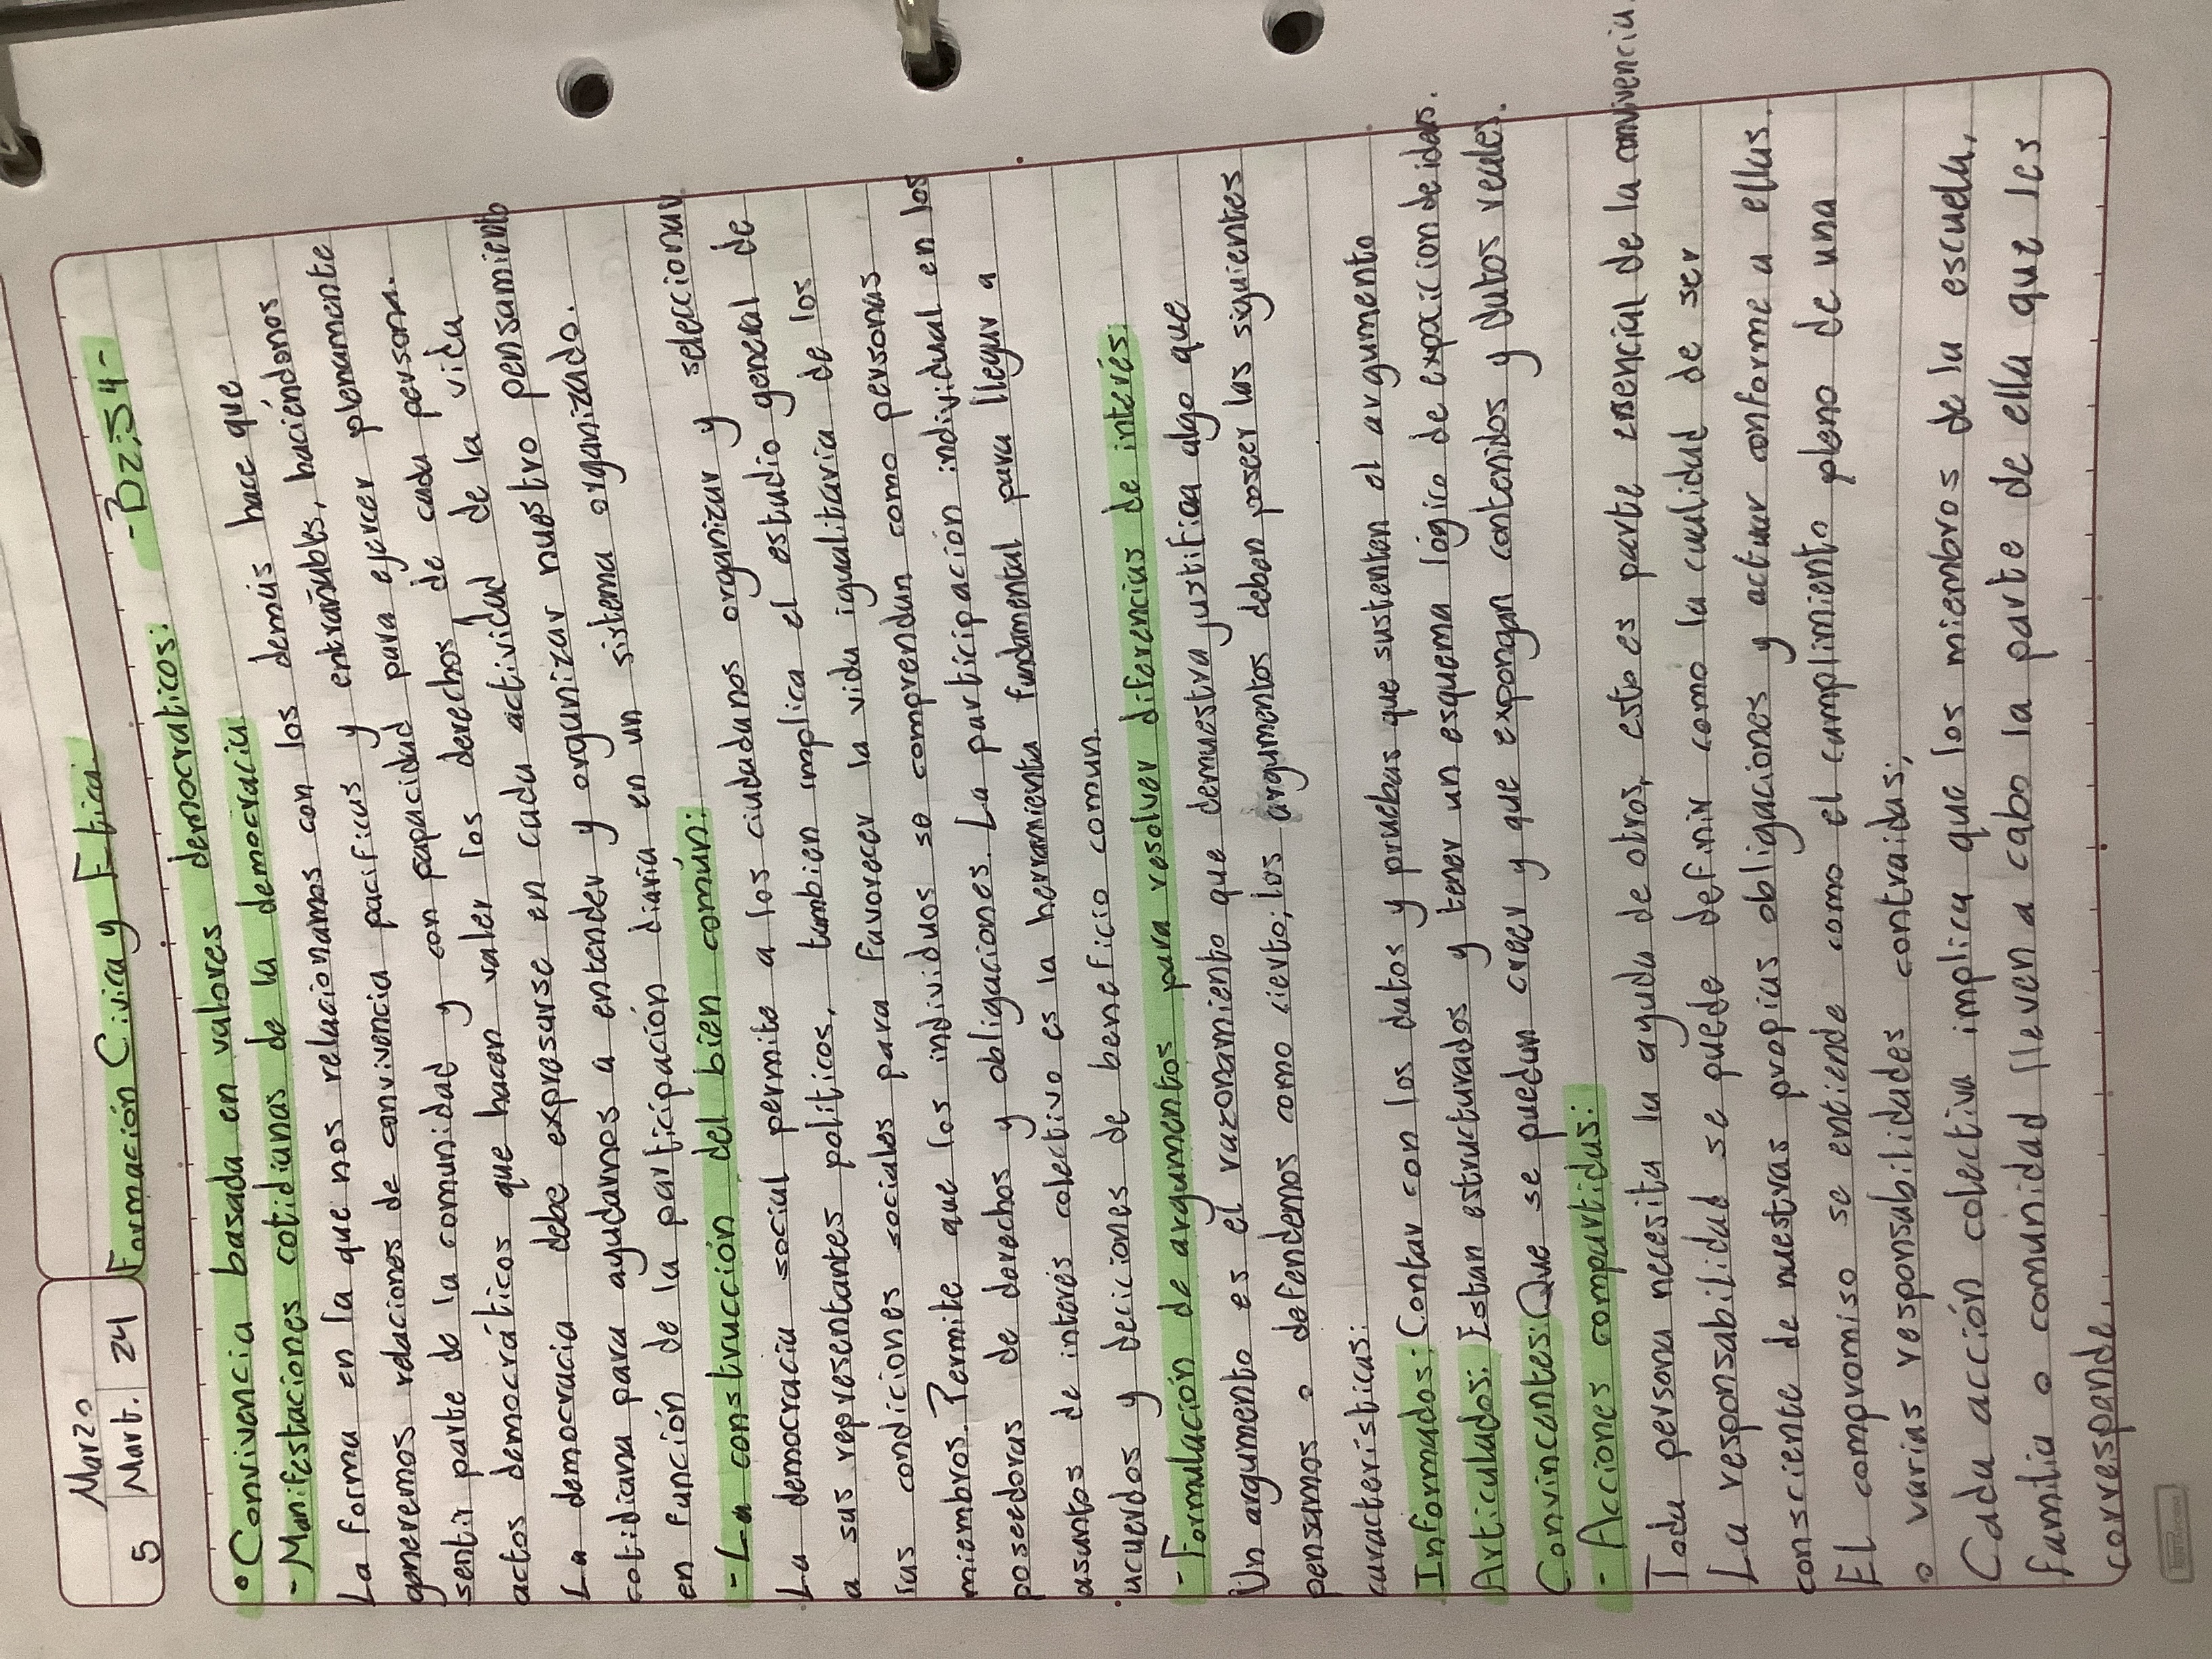 Marzo
5 Mart. 24
Formación Civica y Etica.
-B2;S4-
• Convivencia basada en valores democraticos:
- Manifestaciones cotidianas de la democracia
La forma en la que nos relacionamos con los demás hace que
generemos relaciones de convivencia pacificas y entrañables, haciéndonos
sentir parte de la comunidad y con papacidad para ejercer plenamente
actos democráticos que hacen valer los derechos de cada persona.
La democracia debe expresarse en cada actividad de la vida
cotidiana para ayudarnos a entender y organizar nuestro pensamiento
en función de la participación diaria en un sistema organizado.
- La construcción del bien común:
La democracia social permite a los ciudadanos organizar y seleccionar
a sus representantes politicos, tambien implica el estudio general de
las condiciones sociales para favorecer la vida igualitaria de los
miembros. Permite que los individuos se comprendan como personas
poseedoras de derechos y obligaciones. La participación individual en los
asuntos de interés colectivo es la herramienta fundamental para llegar a
acuerdos y deciciones de beneficio comun.
- Formulación de argumentos para resolver diferencias de interés:
Un argumento es el razonamiento que demuestra justifica algo que
pensamos o defendemos como cierto; los argumentos deben poseer las siguientes
características:
Informados: Contar con los datos y pruebas que sustenten el argumento
Articulados: Estan estructurados y tener un esquema lógico de expocicion de ideas.
Convincantes: Que se puedan creer y que expongan contenidos y datos reales.
- Acciones compartidas:
Toda persona necesita la ayuda de otros, esto es parte esencial de la convivencia.
La responsabilidad se puede definir como la cualidad de ser
consciente de nuestras propias obligaciones y actuar conforme a ellas.
El compromiso se entiende como el cumplimiento pleno de una
o varias responsabilidades contraidas;
Cada acción colectiva implica que los miembros de la escuela,
familia o comunidad lleven a cabo la parte de ella que les
corresponde.